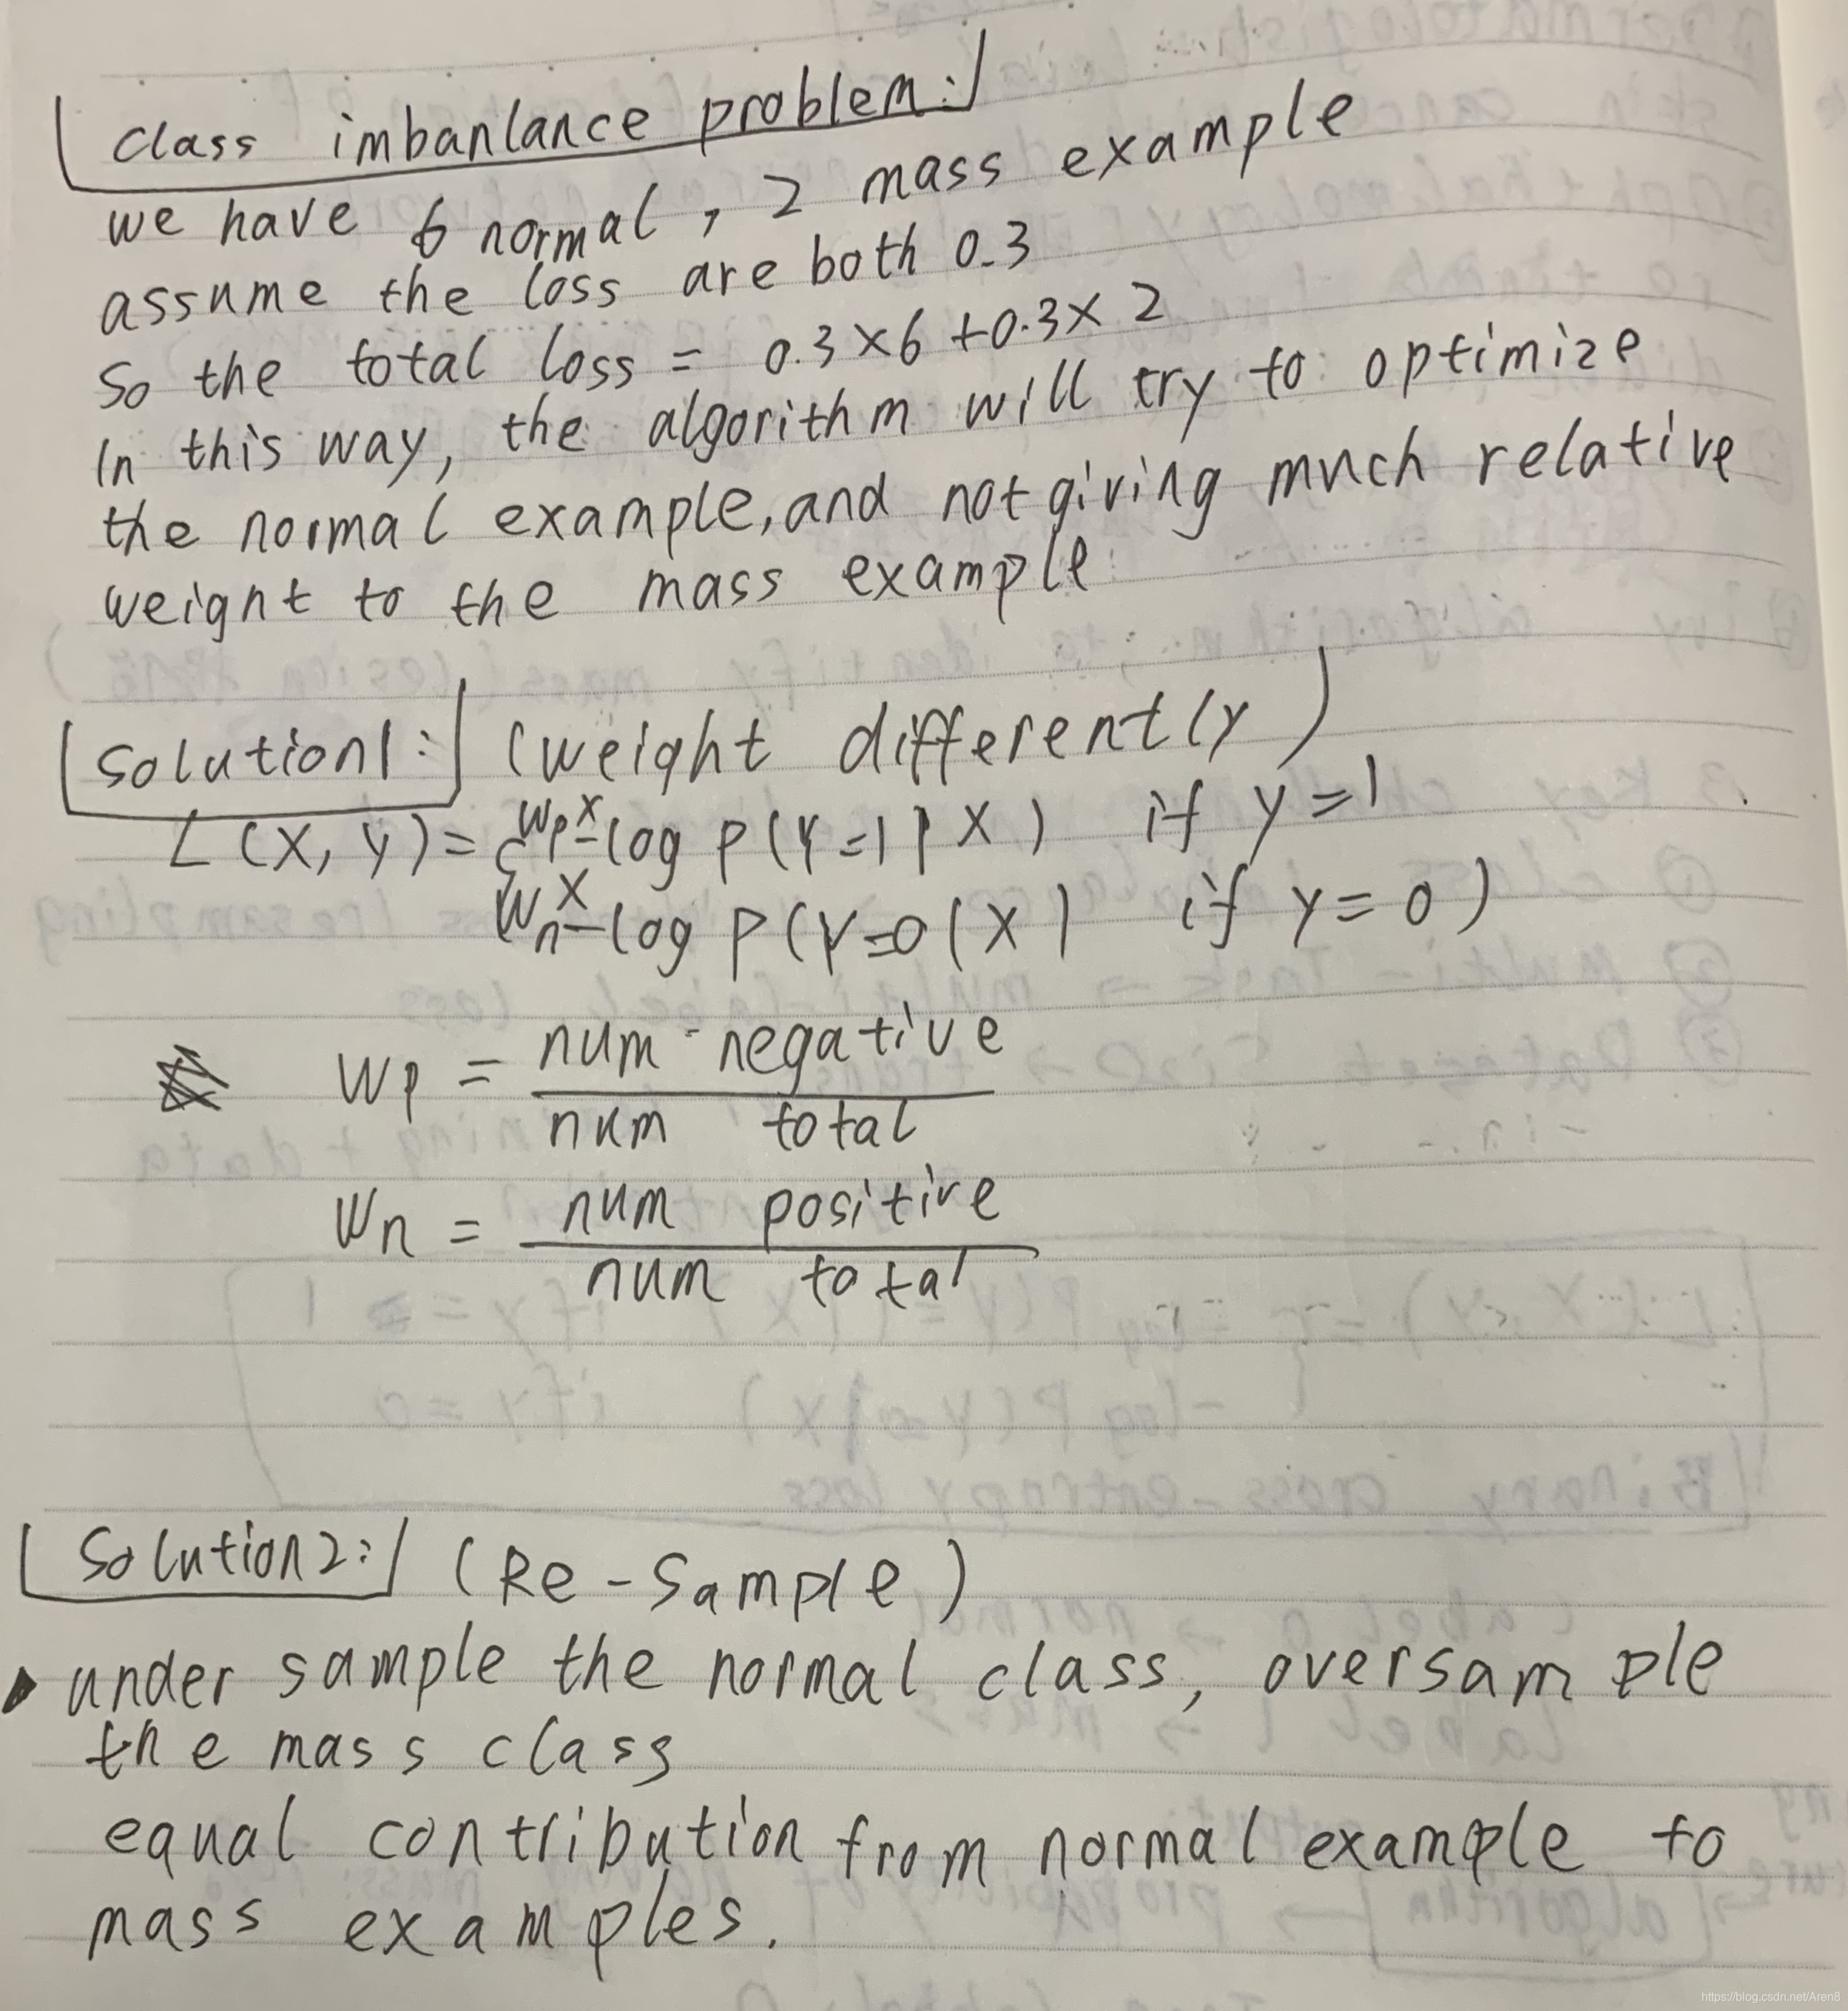 class imbanlance problem:
we have 6 normal, 2 mass example
assume the loss are both 0.3
So the total loss = 0.3×6+0.3×2
In this way, the algorithm will try to optimize
the normal example, and not giving much relative
weignt to the mass example
Solution1: (weight differently)
L(X, Y) = { Wp× -log P(Y=1|X) if y=1
Wn× -log P(Y=0|X) if y=0)
Wp = num negative
num total
Wn = num positive
num total
Solution2: (Re-Sample)
under sample the normal class, oversample
the mass class
equal contribution from normal example to
mass examples.
https://blog.csdn.net/Aren8